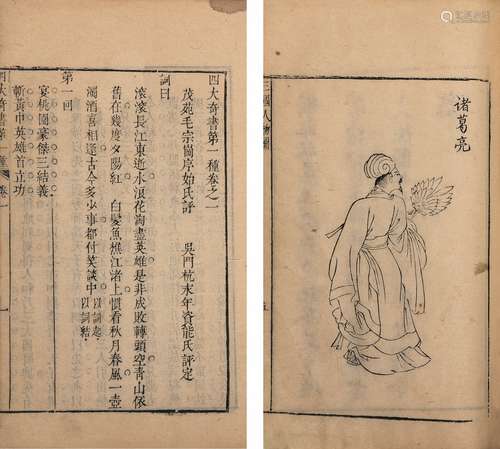 四大奇書第一種卷之一
茂苑毛宗崗序始氏評
吳門杭永年資能氏評定
詞曰
滾滾長江東逝水浪花淘盡英雄是非成敗轉頭空青山依
舊在幾度夕陽紅 白髮魚樵江渚上慣看秋月春風一壺
濁酒喜相逢古今多少事都付笑談中 以詞起以詞結
第一回
宴桃園豪傑三結義
斬黃巾英雄首立功
四大奇書第一種 卷一
諸葛亮